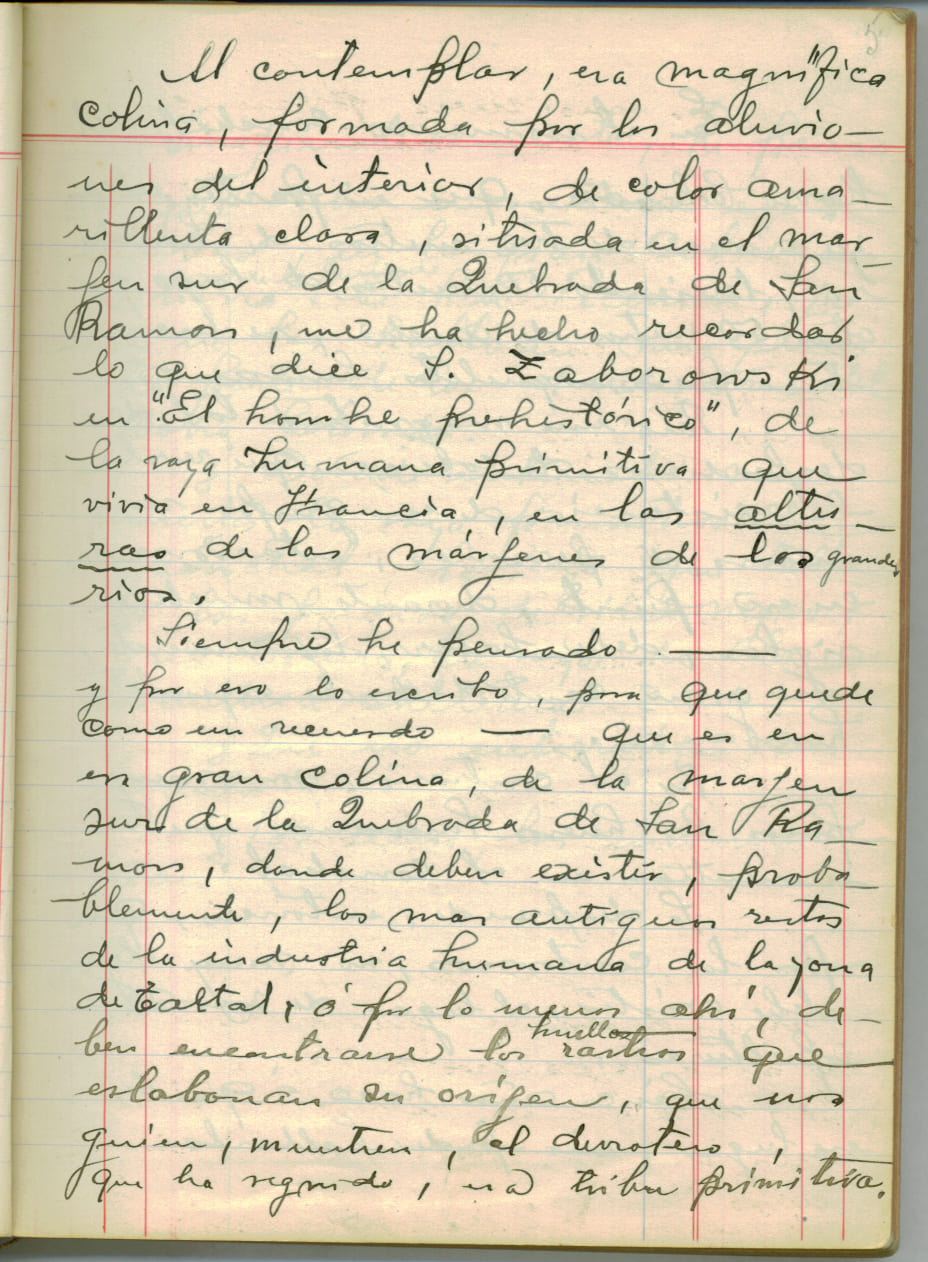 5
Al contemplar, esa magnífica
colina, formada por los aluvio-
nes del interior, de color ama-
rillenta clara, situada en el mar-
gen sur de la Quebrada de San
Ramon, me ha hecho recordar
lo que dice S. Zaborowski
en "El hombre prehistórico", de
la raza humana primitiva que
vivia en Francia, en las altu-
ras de las márgenes de los grandes
rios.
Siempre he pensado —
y por eso lo escribo, para que quede
como un recuerdo — que es en
esa gran colina, de la margen
sur de la Quebrada de San Ra-
mon, donde deben existir, proba-
blemente, los mas antiguos restos
de la industria humana de la zona
de Taltal, ó por lo menos ahí, de-
ben encontrarse los rastros huellas que
eslabonan su orígen, que nos
guien, muestren, el derrotero,
que ha seguido, esa tribu primitiva.